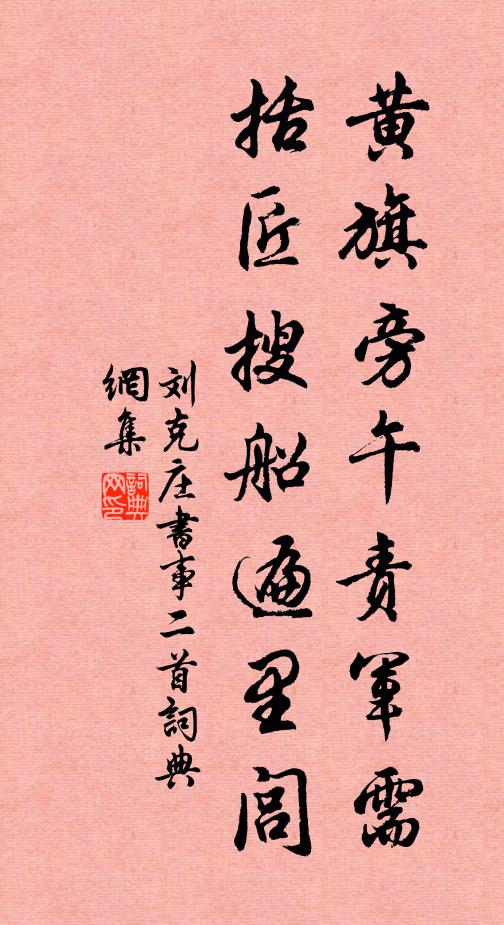 黄旗旁午责军需
括匠搜船遍里闾
刘克庄書事二首詞典
網集
詞典
网印